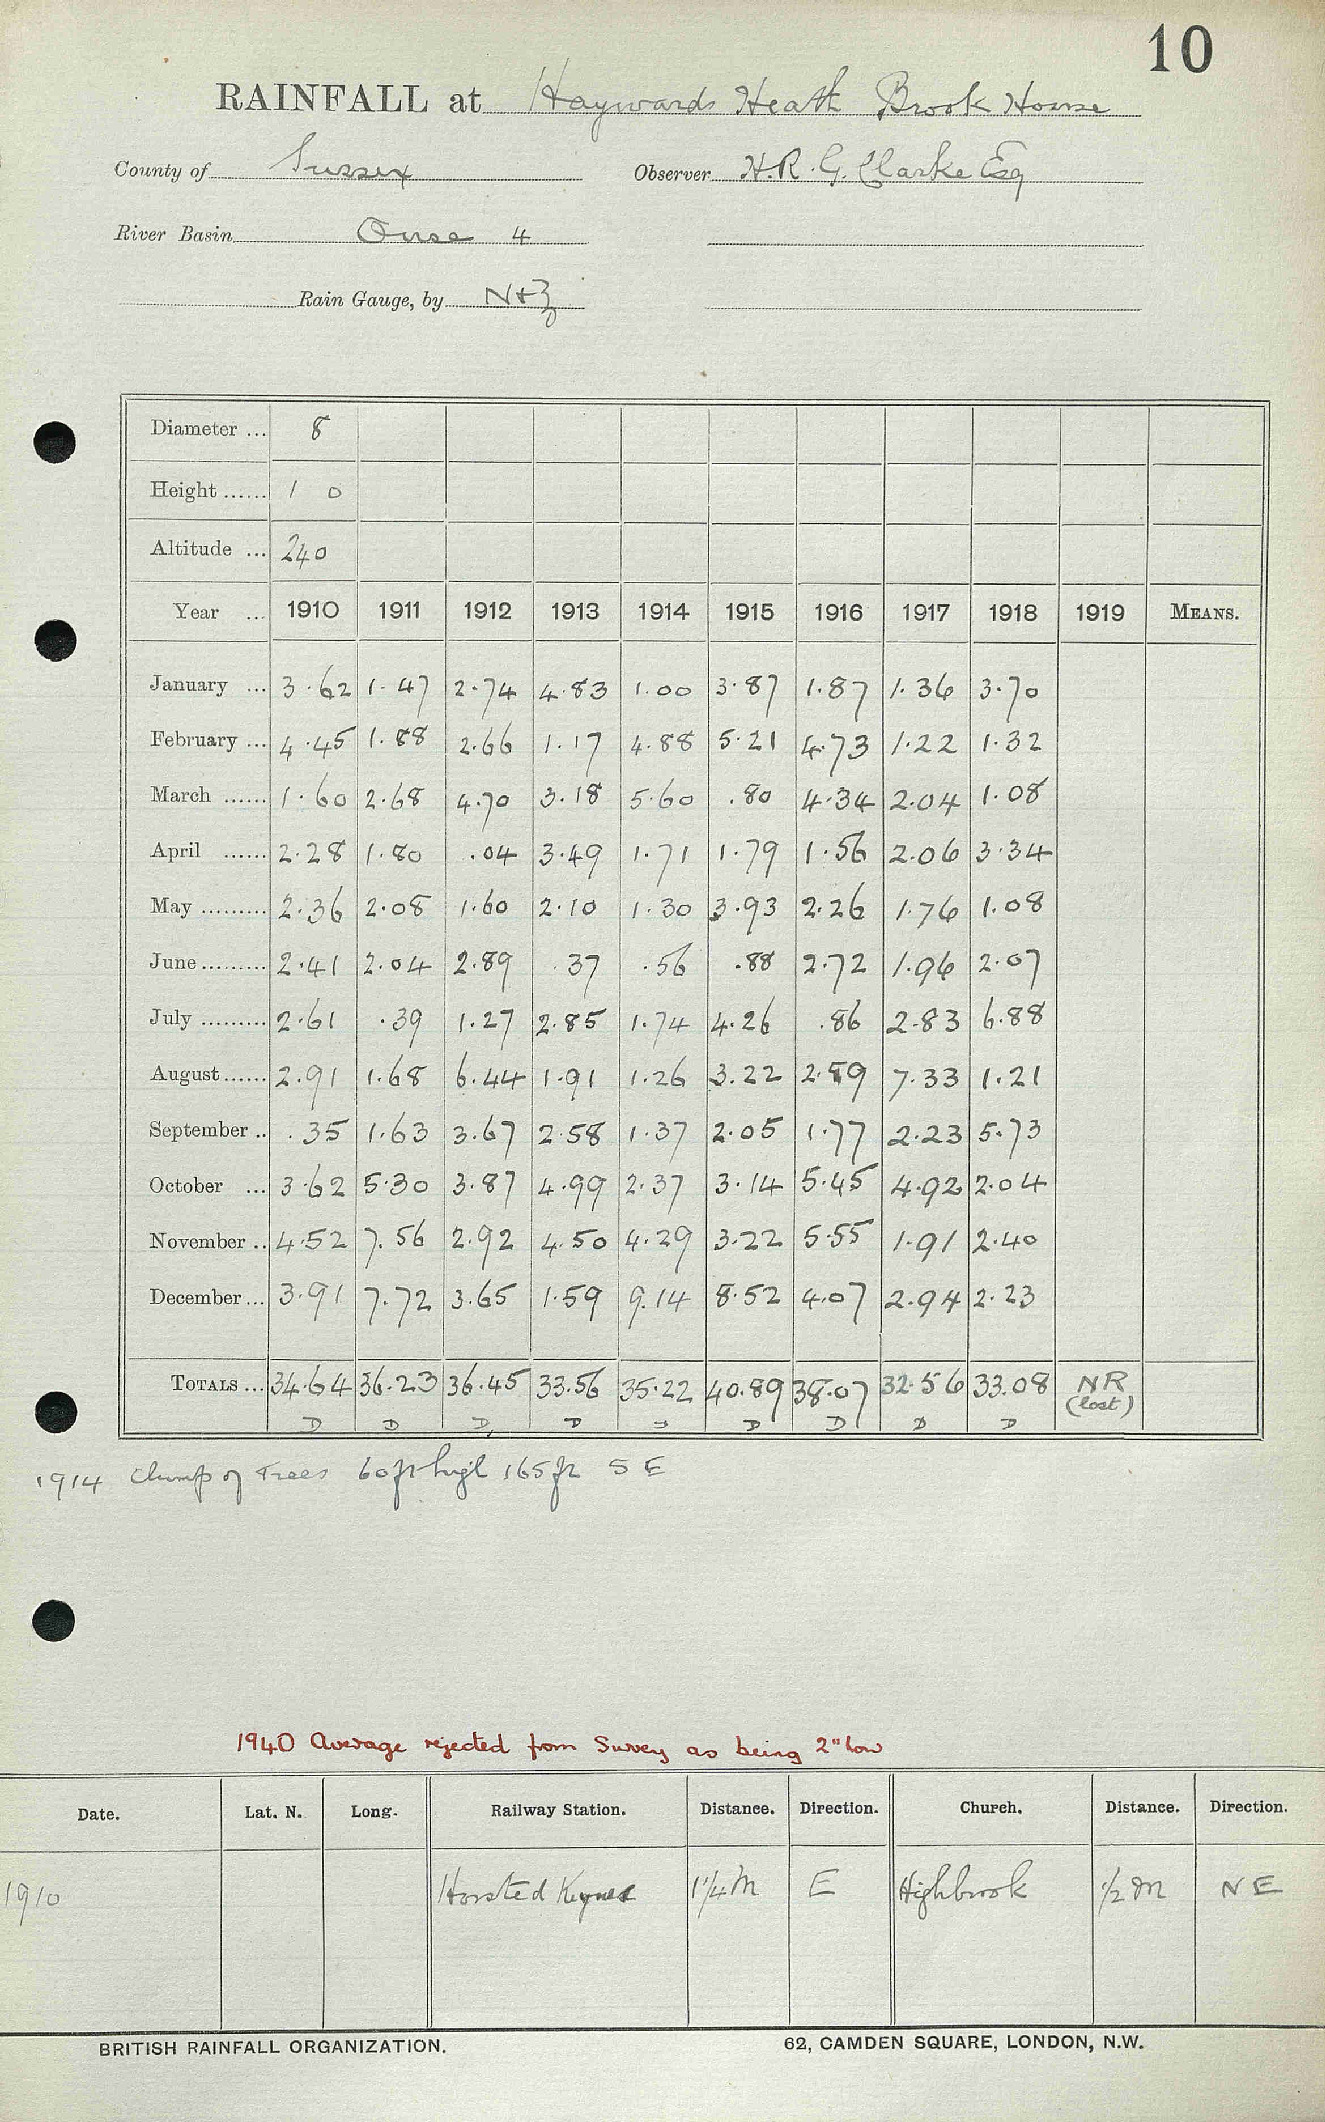 10
RAINFALL at Haywards Heath Brook House
County of Sussex Observer H.R.G. Clarke Esq
River Basin Ouse 4
Rain Gauge, by N+Z
Diameter ... 8
Height ...... 1 0
Altitude ... 240
Year ... 1910 1911 1912 1913 1914 1915 1916 1917 1918 1919 MEANS.
January ... 3.62 1.47 2.74 4.83 1.00 3.87 1.87 1.36 3.70
February ... 4.45 1.88 2.66 1.17 4.88 5.21 4.73 1.22 1.32
March ...... 1.60 2.68 4.70 3.18 5.60 .80 4.34 2.04 1.08
April ...... 2.28 1.80 .04 3.49 1.71 1.79 1.56 2.06 3.34
May ......... 2.36 2.08 1.60 2.10 1.30 3.93 2.26 1.76 1.08
June ......... 2.41 2.04 2.89 .37 .56 .88 2.72 1.96 2.07
July ......... 2.61 .39 1.27 2.85 1.74 4.26 .86 2.83 6.88
August ...... 2.91 1.68 6.44 1.91 1.26 3.22 2.89 7.33 1.21
September .. .35 1.63 3.67 2.58 1.37 2.05 1.77 2.23 5.73
October ... 3.62 5.30 3.87 4.99 2.37 3.14 5.45 4.92 2.04
November .. 4.52 7.56 2.92 4.50 4.29 3.22 5.55 1.91 2.40
December ... 3.91 7.72 3.65 1.59 9.14 8.52 4.07 2.94 2.23
TOTALS ... 34.64 36.23 36.45 33.56 35.22 40.89 38.07 32.56 33.08 NR
(lost)
D D D D D D D D D
1914 Clump of Trees 60ft high 165ft S E
1940 Average rejected from Survey as being 2" low
Date. Lat. N. Long. Railway Station. Distance. Direction. Church. Distance. Direction.
1910 Horsted Keynes 1 1/4 M E Highbrook 1/2 M N E
BRITISH RAINFALL ORGANIZATION. 62, CAMDEN SQUARE, LONDON, N.W.